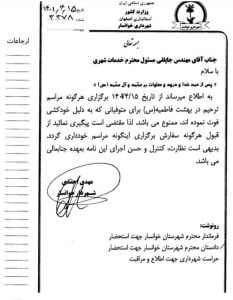 جمهوری اسلامی ایران
وزارت کشور
استانداری اصفهان
شهرداری خوانسار
۱۴۰۱/۴/۱۵
۳۳۷۸
ارجاعات
بسمه تعالی
جناب آقای مهندس جاپلقی مسئول محترم خدمات شهری
با سلام
پس از حمد خدا و درود و صلوات بر محمد و آل محمد (ص)
به اطلاع میرساند از تاریخ ۱۴۰۱/۰۴/۱۵ برگزاری هرگونه مراسم
ترحیم در بهشت فاطمه(س) برای متوفیانی که به دلیل خودکشی
فوت نموده اند، ممنوع می باشد. لذا مقتضی است پیگیری نمائید از
قبول هرگونه سفارش برگزاری اینگونه مراسم خودداری گردد.
بدیهی است نظارت، کنترل و حسن اجرای این نامه بعهده جنابعالی
می باشد.
مهدی
شهردار خوانسار
رونوشت:
فرماندار محترم شهرستان خوانسار جهت استحضار
دادستان محترم شهرستان خوانسار جهت استحضار
حراست شهرداری جهت اطلاع و مراقبت